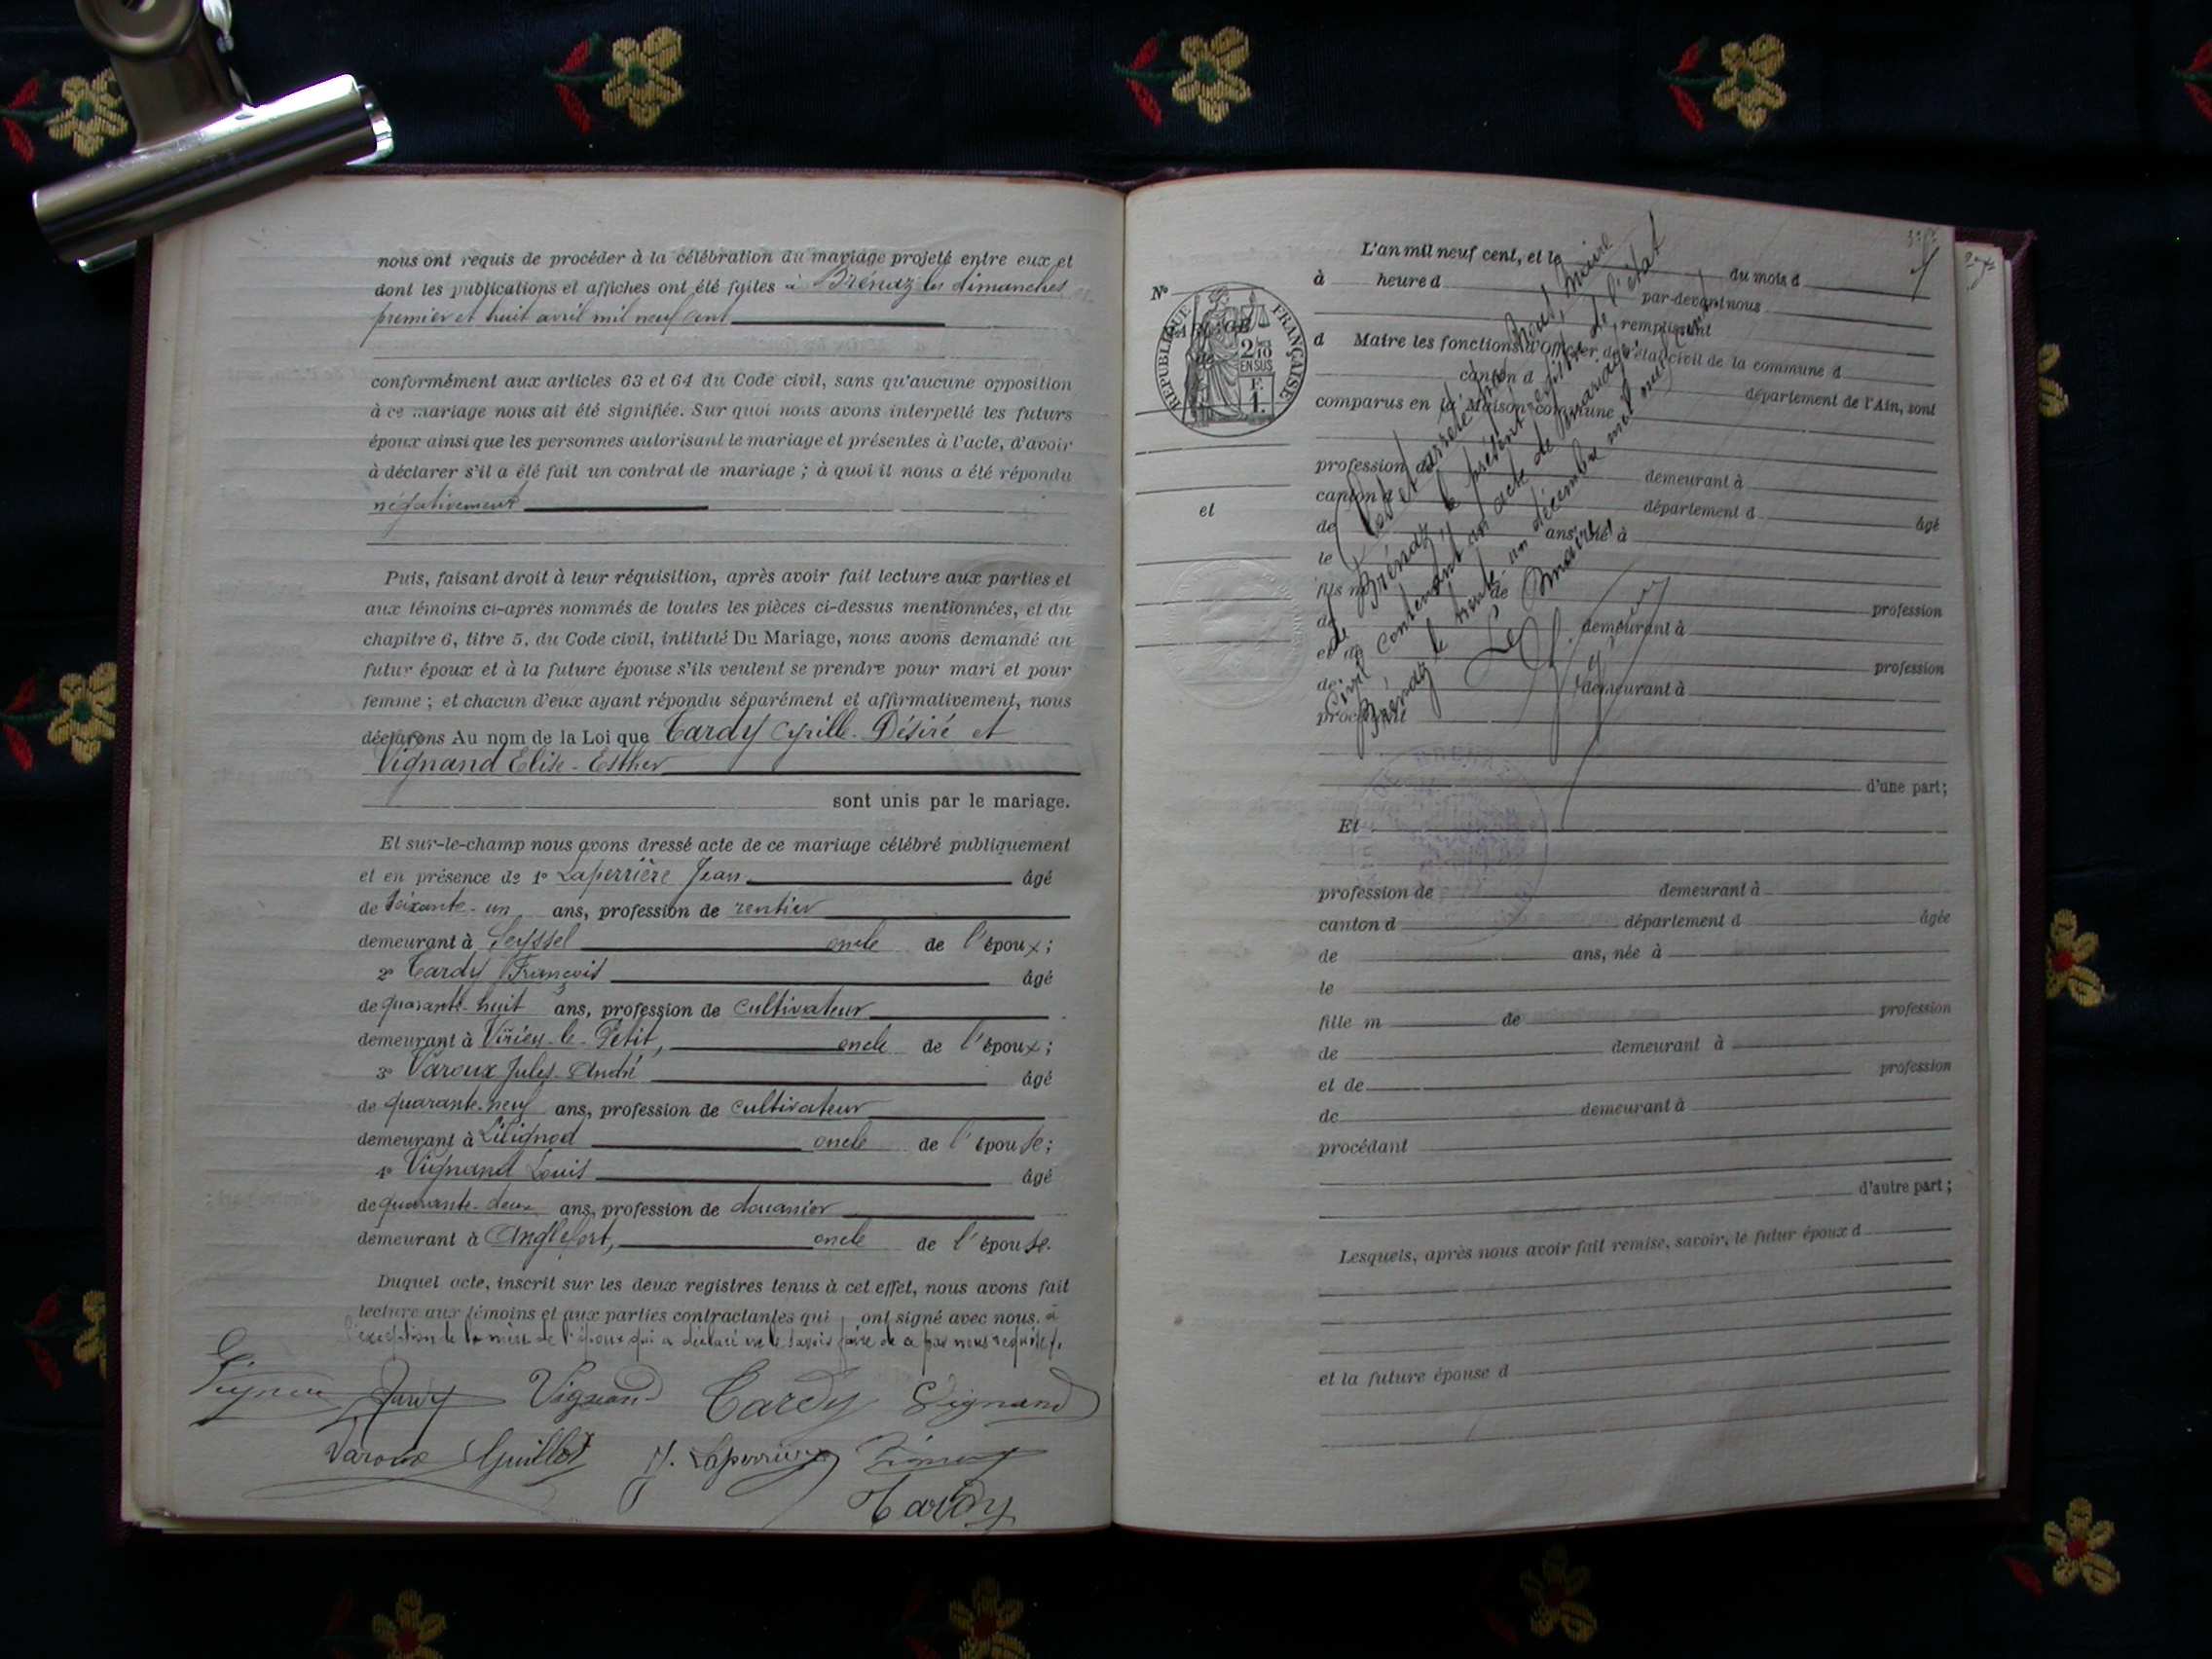 nous ont requis de procéder à la célébration du mariage projeté entre eux et
dont les publications et affiches ont été faites à Brénaz les dimanches
premier et huit avril mil neuf cent
conformément aux articles 63 et 64 du Code civil, sans qu'aucune opposition
à ce mariage nous ait été signifiée. Sur quoi nous avons interpellé les futurs
époux ainsi que les personnes autorisant le mariage et présentes à l'acte, d'avoir
à déclarer s'il a été fait un contrat de mariage ; à quoi il nous a été répondu
négativement
Puis, faisant droit à leur réquisition, après avoir fait lecture aux parties et
aux témoins ci-après nommés de toutes les pièces ci-dessus mentionnées, et du
chapitre 6, titre 5, du Code civil, intitulé Du Mariage, nous avons demandé au
futur époux et à la future épouse s'ils veulent se prendre pour mari et pour
femme ; et chacun d'eux ayant répondu séparément et affirmativement, nous
déclarons Au nom de la Loi que Tardy Cyrille-Désiré et
Vignand Elise-Esther
sont unis par le mariage.
Et sur-le-champ nous avons dressé acte de ce mariage célébré publiquement
et en présence de 1º Laperrière Jean âgé
de soixante-un ans, profession de rentier
demeurant à Seyssel oncle de l'époux ;
2º Tardy François âgé
de quarante-huit ans, profession de cultivateur
demeurant à Virieu-le-Petit, oncle de l'époux ;
3º Varoux Jules-André âgé
de quarante-neuf ans, profession de cultivateur
demeurant à Lilignod oncle de l'épouse ;
4º Vignand Louis âgé
de quarante-deux ans, profession de douanier
demeurant à Anglefort, oncle de l'épouse.
Duquel acte, inscrit sur les deux registres tenus à cet effet, nous avons fait
lecture aux témoins et aux parties contractantes qui ont signé avec nous, à
l'exception de la mère de l'époux qui a déclaré ne le savoir faire de ce par nous requise.
Tardy Vignand Tardy Vignand
Varoux Guillot J. Laperrière
Tardy
L'an mil neuf cent, et le du mois d
à heure d par-devant nous
remplissant
d Maire les fonctions d'Officier de l'état civil de la commune d
canton d département de l'Ain, sont
comparus en la Maison commune
profession de demeurant à
canton d département d âgé
de ans, né à
le
fils m de profession
de demeurant à
et de profession
de demeurant à
procédant
d'une part ;
Et
profession de demeurant à
canton d département d âgée
de ans, née à
le
fille m de profession
de demeurant à
et de profession
de demeurant à
procédant
d'autre part ;
Lesquels, après nous avoir fait remise, savoir, le futur époux d
et la future épouse d
Nº
RÉPUBLIQUE FRANÇAISE
2/10 EN SUS
F.
1.
et
Clos et arrêté par Nous, Maire
de Brénaz, le présent registre de l'état
civil contenant un acte de mariage.
Brénaz le trente-un décembre mil neuf cent
Le Maire